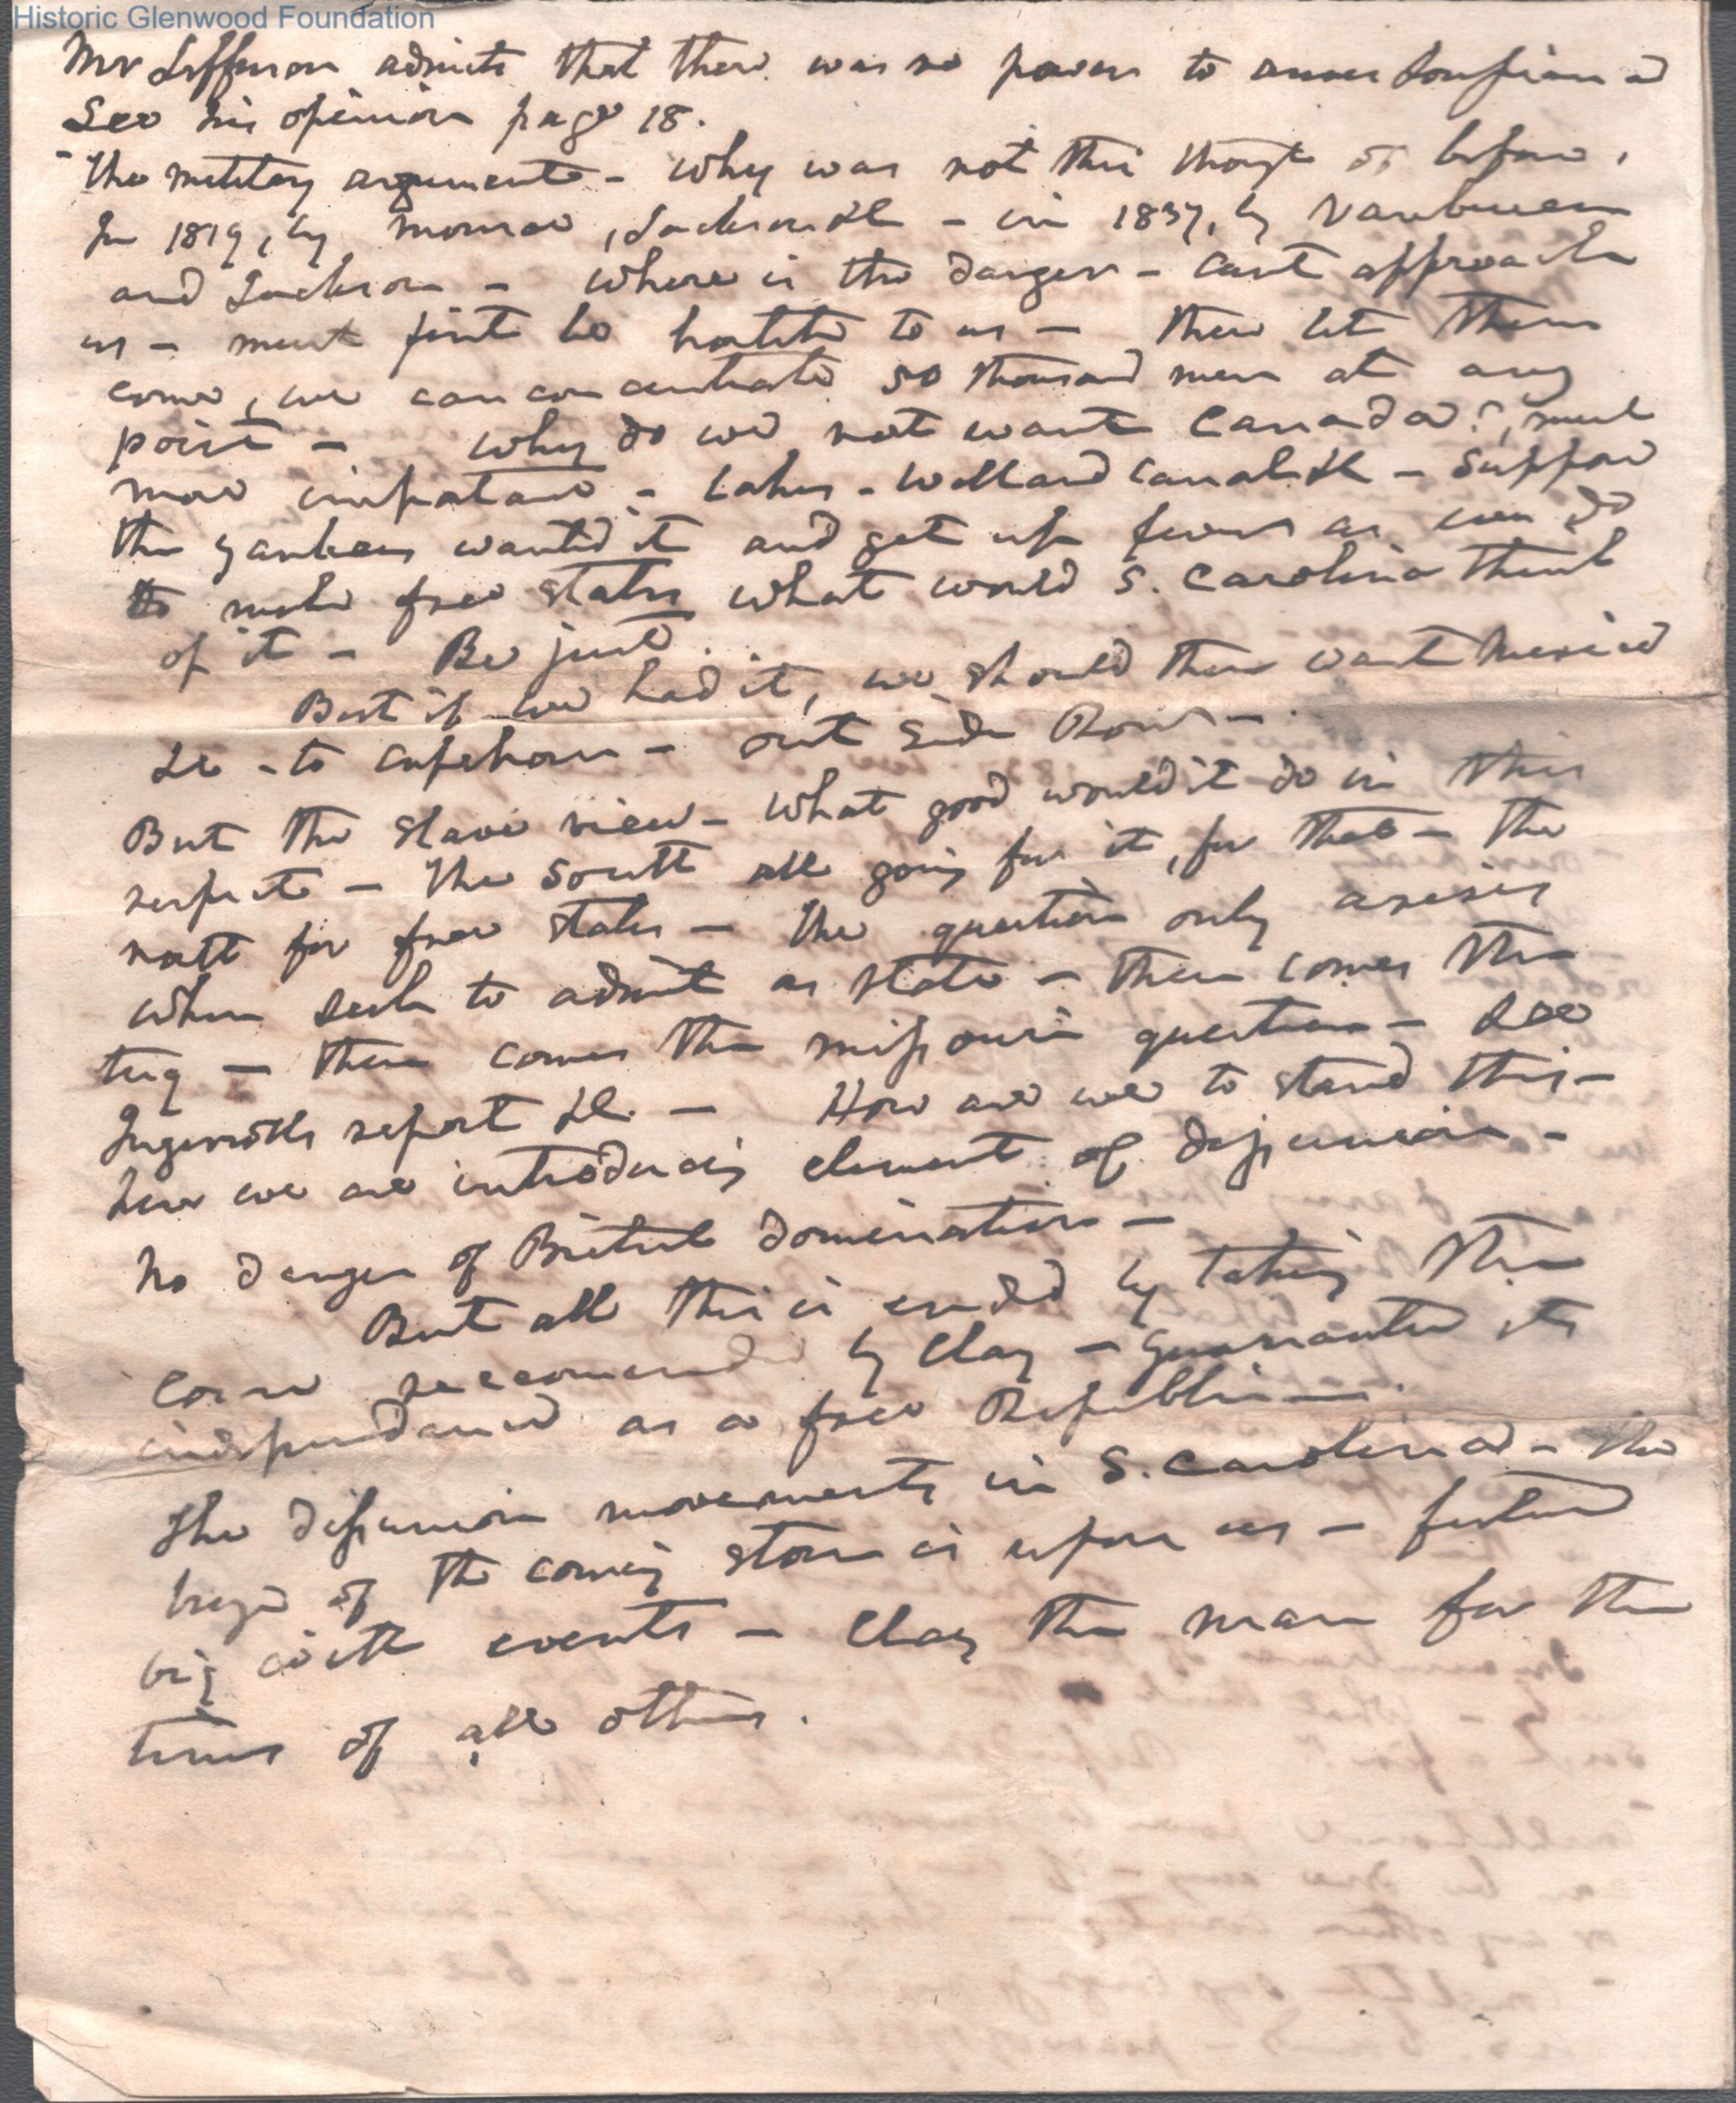 Historic Glenwood Foundation
Mr Jefferson admits that there was no power to annex Louisiana
See his opinion page 18.
- The military arguments - Why was not this thought of before,
In 1819, by Monroe, Jackson &c - in 1837, by Vanburen
and Jackson - Where is the danger - Cant approach
us - must first be hostile to us - Then let them
come, we can concentrate 50 thousand men at any
point - Why do we not want Canada?, much
more important - Lakes - Welland Canal &c - Suppose
the yankees wanted it and get up fever as we do
to make free states what would S. Carolina think
of it - Be just.
But if we had it, we should then want Mexico
&c - to Cape horn - out Side Row -
But the slave view - What good would it do in this
respect - The South all going for it, for that - the
north for free states - The question only arises
when seek to admit as state - Then comes the
tug - then comes the Missouri question - See
Ingersolls report &c. - How are we to stand this -
here we are introducing element of disunion -
No danger of British domination -
But all this is ended by taking the
Corse reccomended by Clay - guarantee its
independance as a free Republic -
The disunion movements in S. Carolina - the
of the coming storm is upon us - future
big with events - Clay the man for the
times of all others.